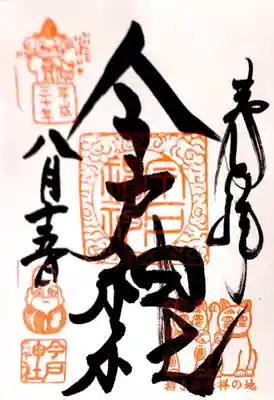 奉拝
今戸神社
平成
三十年
八月十五日
今戸
神社
招き猫発祥の地